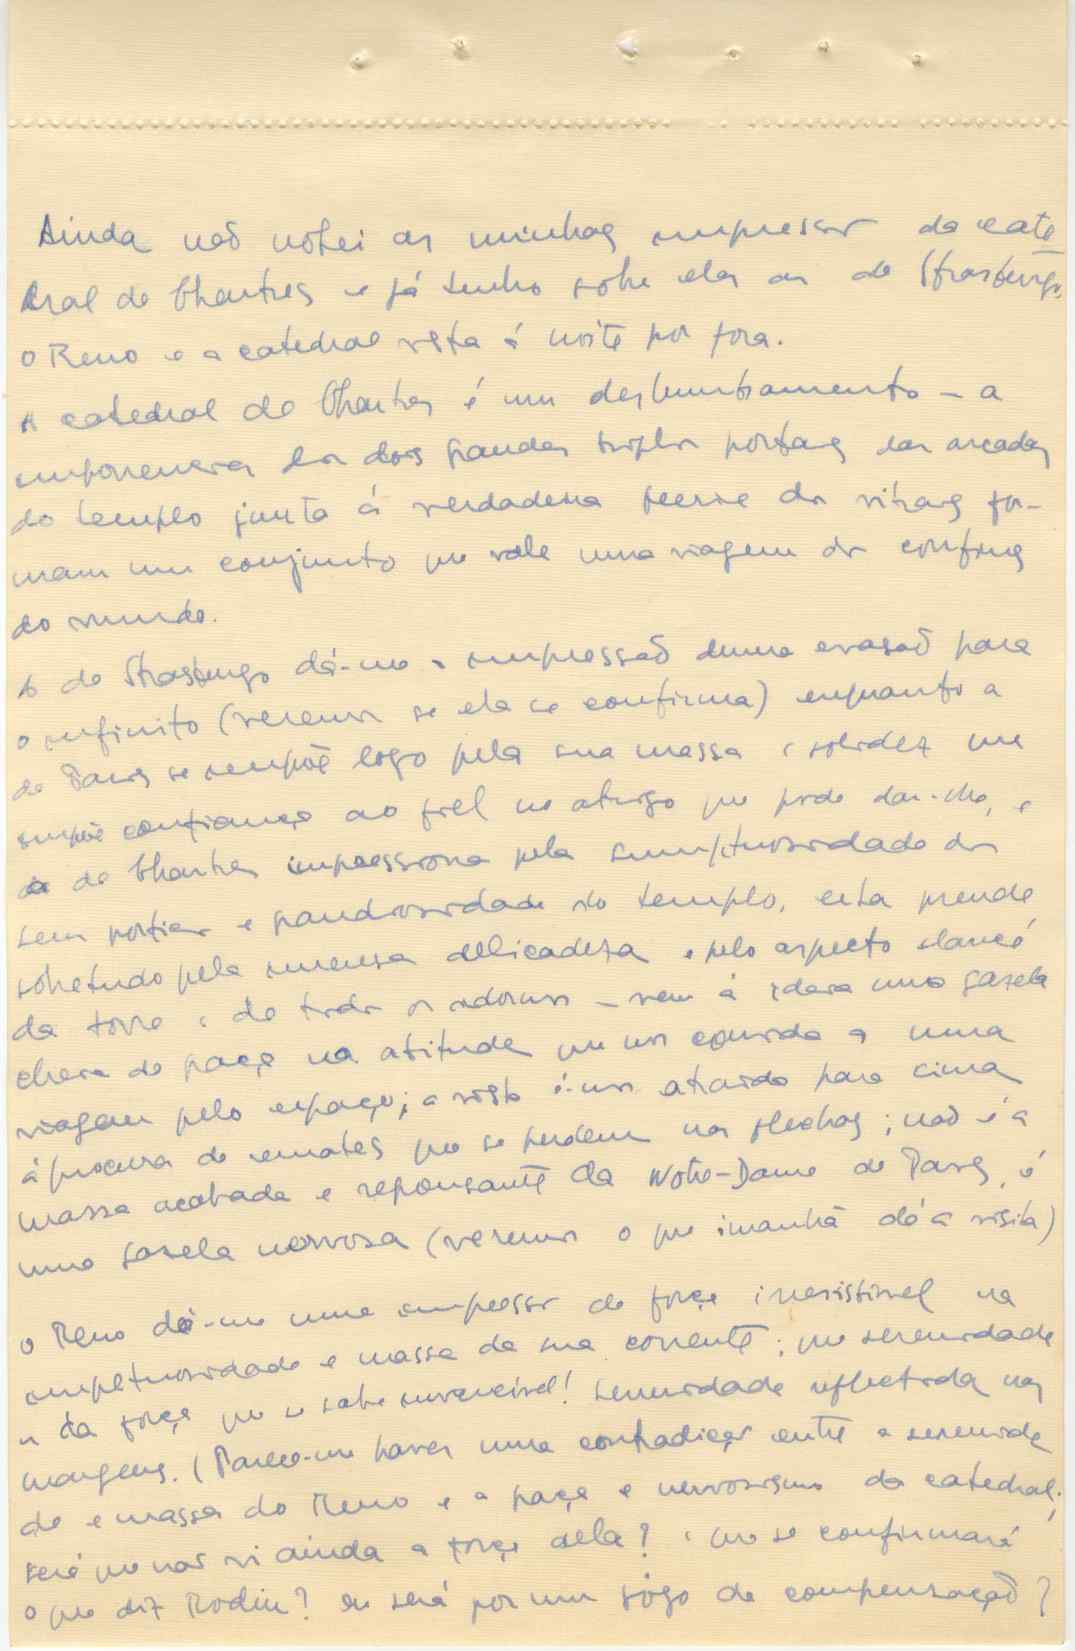 Ainda não notei as minhas impressões da cate
dral de Chartres e já tenho sobre elas as de Strasburgo,
o Reno e a catedral vista à noite por fora.
A catedral de Chartres é um deslumbramento – a
imponencia dos dois grandes triplos portaes das arcadas
do templo junta á verdadeira feerie dos vitraes for-
mam um conjunto que vale uma viagem aos confins
do mundo.
A de Strasburgo dá-me a impressão duma evasão para
o infinito (veremos se ela se confirma) enquanto a
de Paris se impõe logo pela sua massa e solidez que
impõe confiança ao fiel no abrigo que pode dar-lhe, e
a de Chartres impressiona pela sumptuosidade dos
seus porticos e grandiosidade do templo, esta prende
sobretudo pela imensa delicadeza e pelo aspecto elancé
da torre e de todos os adornos – vem á ideia uma gazela
cheia de graça na atitude que nos convida a uma
viagem pelo espaço; a vista é-nos atraida para cima
á procura de remates que se perdem nas flechas; não é a
massa acabada e repousante da Notre-Dame de Paris, é
uma gazela nervosa (veremos o que àmanhã dá a visita)
O Reno dá-me uma impressão de força irresistivel na
impetuosidade e massa da sua corrente; que serenidade
a da força que se sabe invencivel! Serenidade reflectida nas
margens. (Parece-me haver uma contradição entre a serenida
de e massa do Reno e a graça e nervosismo da catedral;
será que não vi ainda a força dela? e que se confirmará
o que diz Rodin? ou será por um jôgo de compensação?